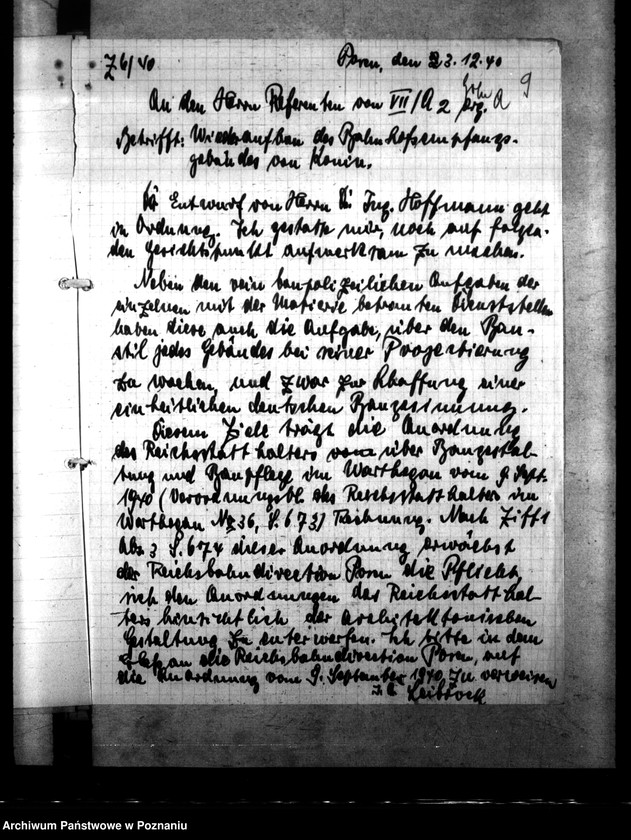 Z 6/40
Posen, den 23.12.40
9
An den Herrn Referenten von VII/A 2 A
Betrifft: Wiederaufbau des Bahnhofsempfangs-
gebäudes von Konin.
Entwurf von Herrn Di Ing. Hoffmann geht
in Ordnung. Ich gestatte mir, noch auf folgen-
den Gesichtspunkt aufmerksam zu machen.
Neben den rein baupolizeilichen Aufgaben der
einzelnen mit der Materie betrauten Dienststellen
haben diese auch die Aufgabe, über den Bau-
stil jedes Gebäudes bei seiner Projektierung
zu wachen, und zwar zur Schaffung einer
einheitlichen deutschen Baugesinnung.
Diesem Ziele trägt die Anordnung
des Reichsstatthalters vom über Baugestal-
tung und Baupflege im Warthegau vom 9. Sept.
1940 (Verordnungsbl. des Reichsstatthalters im
Warthegau Nr 36, S. 673) Rechnung. Nach Ziff 1
Abs 3 S. 674 dieser Anordnung erwächst
der Reichsbahndirection Posen die Pflicht,
sich den Anordnungen des Reichsstatthal-
ters hinsichtlich der architektonischen
Gestaltung zu unterwerfen. Ich bitte in dem
an die Reichsbahndirection Posen, auf
die Anordnung vom 9. September 1940 zu verweisen